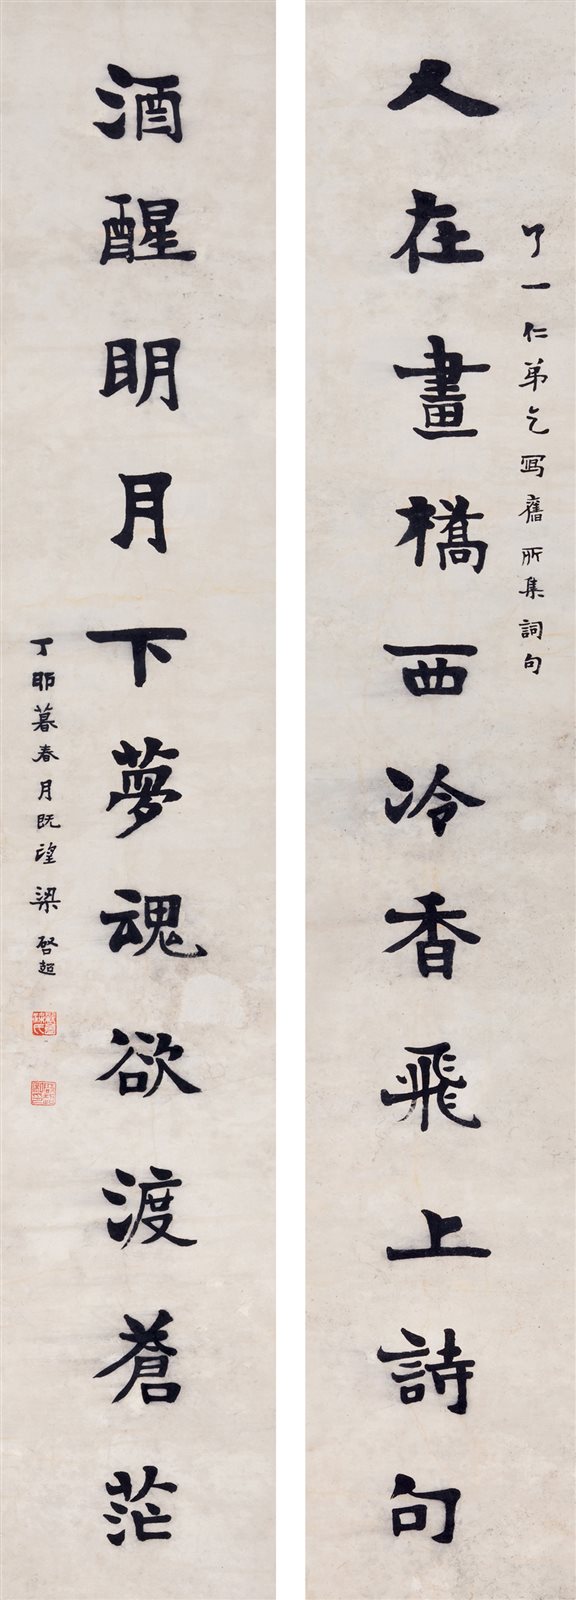 了一仁弟乞寫舊所集詞句
人在畫橋西冷香飛上詩句
酒醒明月下夢魂欲渡蒼茫
丁卯暮春月既望梁啓超